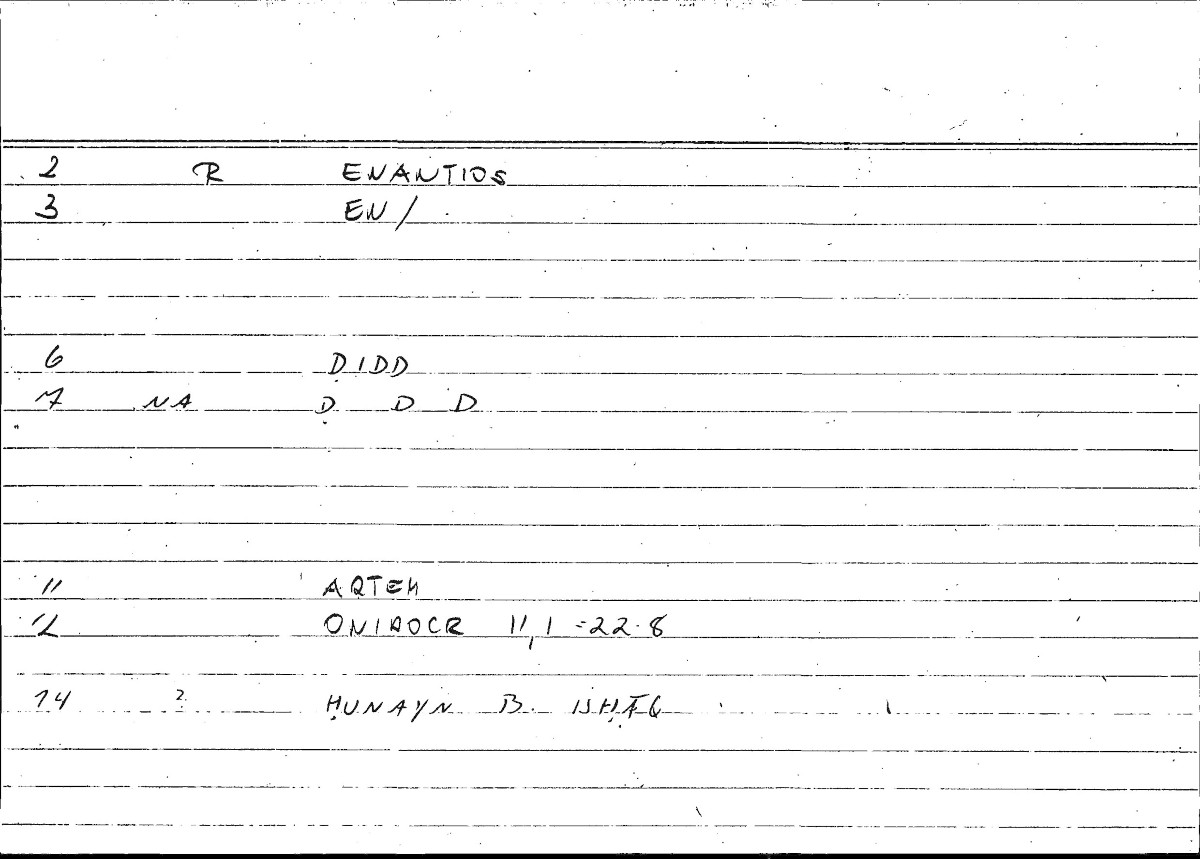 2 R ENANTIOS
3 EN/
6 ḌIDD
7 NA Ḍ D D
11 ARTEM
12 ONIROCR 11,1 = 22.8
14 2 ḤUNAYN B. ISḤĀQ